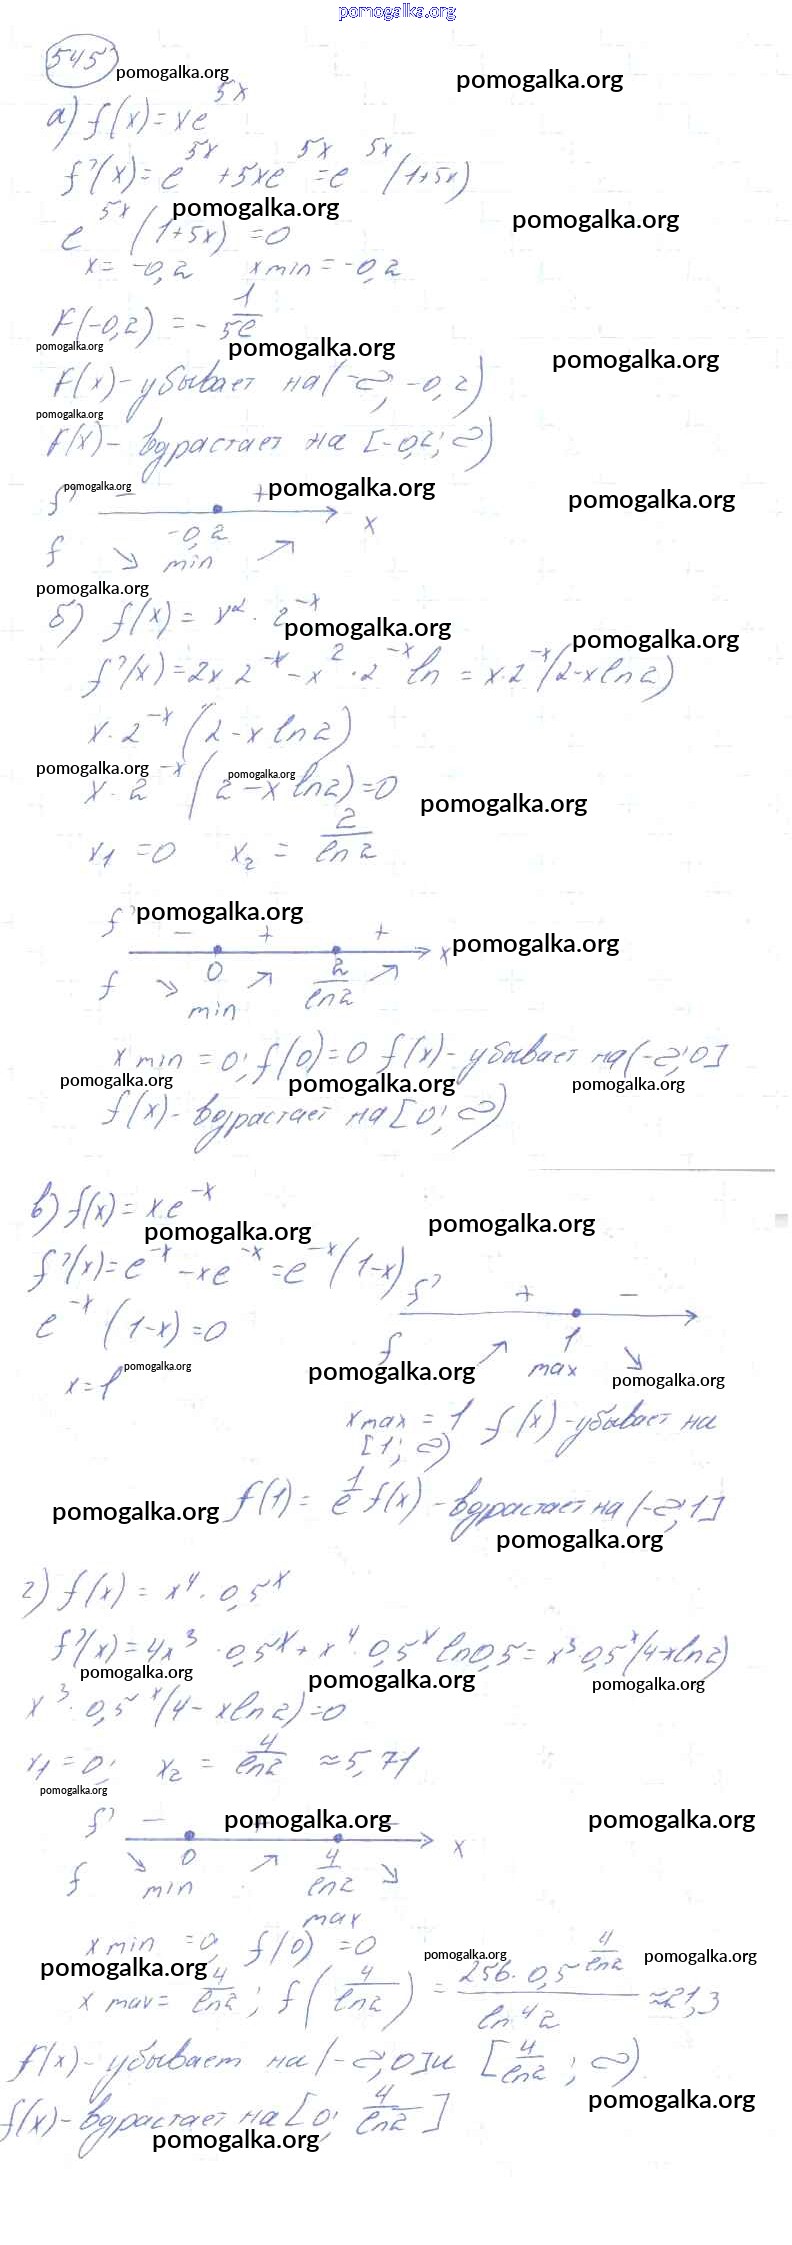 pomogalka.org
545
pomogalka.org
pomogalka.org
а) f(x) = xe^5x
f'(x) = e^5x + 5xe^5x = e^5x (1+5x)
pomogalka.org
pomogalka.org
e^5x (1+5x) = 0
x = -0,2 xmin = -0,2
F(-0,2) = - 1/5e
pomogalka.org
pomogalka.org
pomogalka.org
F(x) - убывает на (-∞, -0,2)
pomogalka.org
F(x) - вдрастает на [-0,2; ∞)
pomogalka.org
pomogalka.org
pomogalka.org
f' - +
-0,2 x
f ↘ min ↗
pomogalka.org
б) f(x) = x² · 2^-x
pomogalka.org
pomogalka.org
f'(x) = 2x 2^-x - x² · 2^-x ln = x·2^-x (2-x ln2)
x · 2^-x (2 - x ln 2)
pomogalka.org
pomogalka.org
x · 2^-x (2 - x ln2) = 0
pomogalka.org
x1 = 0 x2 = 2/ln 2
pomogalka.org
f' - + +
pomogalka.org
0 2/ln2 x
f ↘ min ↗ ↗
x min = 0; f(0) = 0 f(x) - убывает на (-∞; 0]
pomogalka.org
pomogalka.org
pomogalka.org
f(x) - вдрастает на [0; ∞)
в) f(x) = x e^-x
pomogalka.org
pomogalka.org
f'(x) = e^-x - xe^-x = e^-x (1-x)
f' + -
e^-x (1-x) = 0
f ↗ 1 max ↘
pomogalka.org
pomogalka.org
pomogalka.org
x = 1
x max = 1 f(x) - убывает на
[1; ∞)
f(1) = 1/e f(x) - вдрастает на (-∞; 1]
pomogalka.org
pomogalka.org
г) f(x) = x⁴ · 0,5^x
f'(x) = 4x³ · 0,5^x + x⁴ · 0,5^x ln0,5 = x³ 0,5^x (4-xln2)
pomogalka.org
pomogalka.org
pomogalka.org
x³ · 0,5^x (4 - xln2) = 0
x1 = 0; x2 = 4/ln2 ≈ 5,71
pomogalka.org
f' - + -
pomogalka.org
pomogalka.org
0 4/ln2 x
f ↘ min ↗ max ↘
x min = 0, f(0) = 0
pomogalka.org
pomogalka.org
pomogalka.org
x max = 4/ln2; f(4/ln2) = 256 · 0,5^4/ln2 / ln⁴2 ≈ 21,3
f(x) - убывает на (-∞, 0] и [4/ln2; ∞)
pomogalka.org
f(x) - вдрастает на [0; 4/ln2]
pomogalka.org